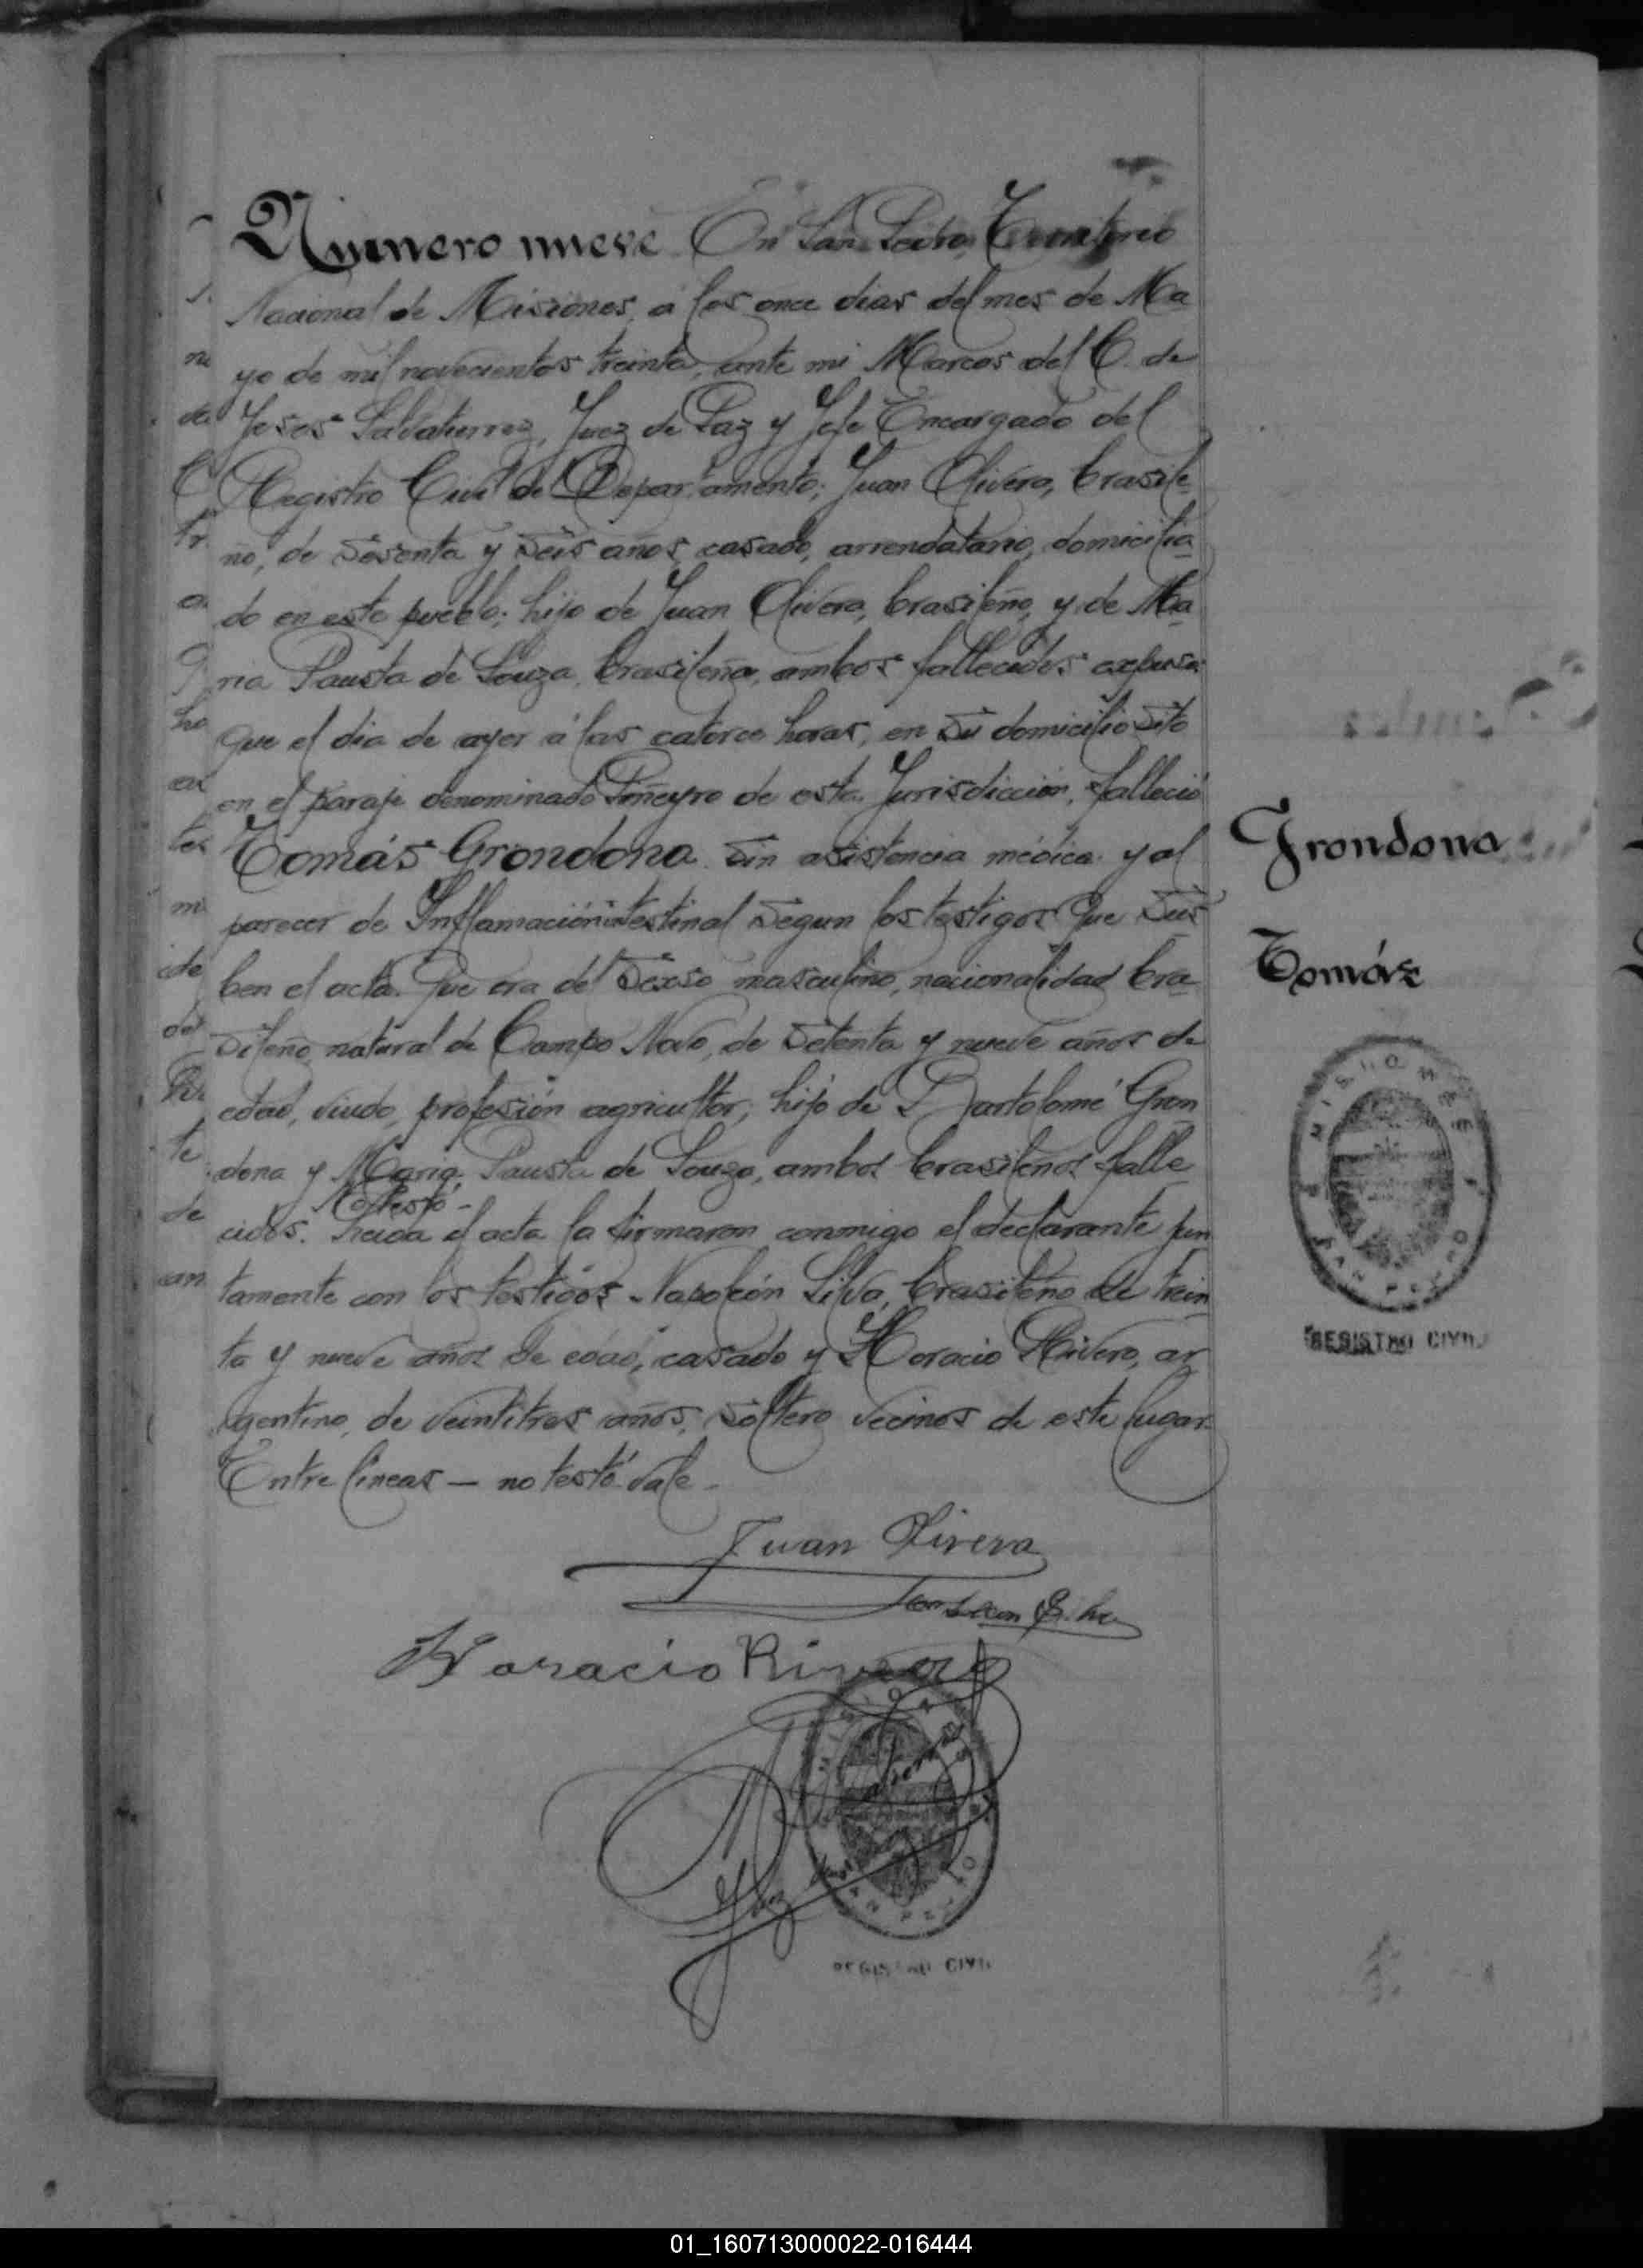 Número nueve. En San Pedro, Territorio
Nacional de Misiones, á los once dias del mes de Ma
yo de mil novecientos treinta, ante mi Marcos del C. de
Jesos Salvatierrez, Juez de Paz y Jefe Encargado del
Registro Civil del Departamento; Juan Olivera, brasile
ño, de sesenta y seis años, casado, arrendatario, domicilia
do en este pueblo; hijo de Juan Olivera, brasileño, y de Ma
ria Pausta de Souza, brasileña, ambos fallecidos expuso:
Que el dia de ayer á las catorce horas, en su domicilio sito
en el paraje denominado Piñeyro de esta Jurisdicción, falleció
Tomás Grondona sin asistencia médica y al
parecer de Inflamación intestinal segun los testigos que sus
ben el acta. Que era del sexso masculino, nacionalidad bra
sileño natural de Campo Novo, de setenta y nueve años de
edad, viudo, profesión agricultor; hijo de Bartolomé Gron
dona y Maria Pausta de Souza, ambos brasileños falle
No testó-
cidos. Leida el acta la firmaron conmigo el declarante jun
tamente con los testigos Napoleón Silva, brasileño de trein
ta y nueve años de edad, casado y Horacio Rivero, ar
gentino, de veintitres años, soltero vecinos de este lugar.
Entre lineas — no testó vale -
Juan Olivera
Horacio Rivero
Juez
MISIONES
SAN PEDRO
REGISTRO CIVIL
Grondona
Tomás
MISIONES
SAN PEDRO
REGISTRO CIVIL
01_160713000022-016444